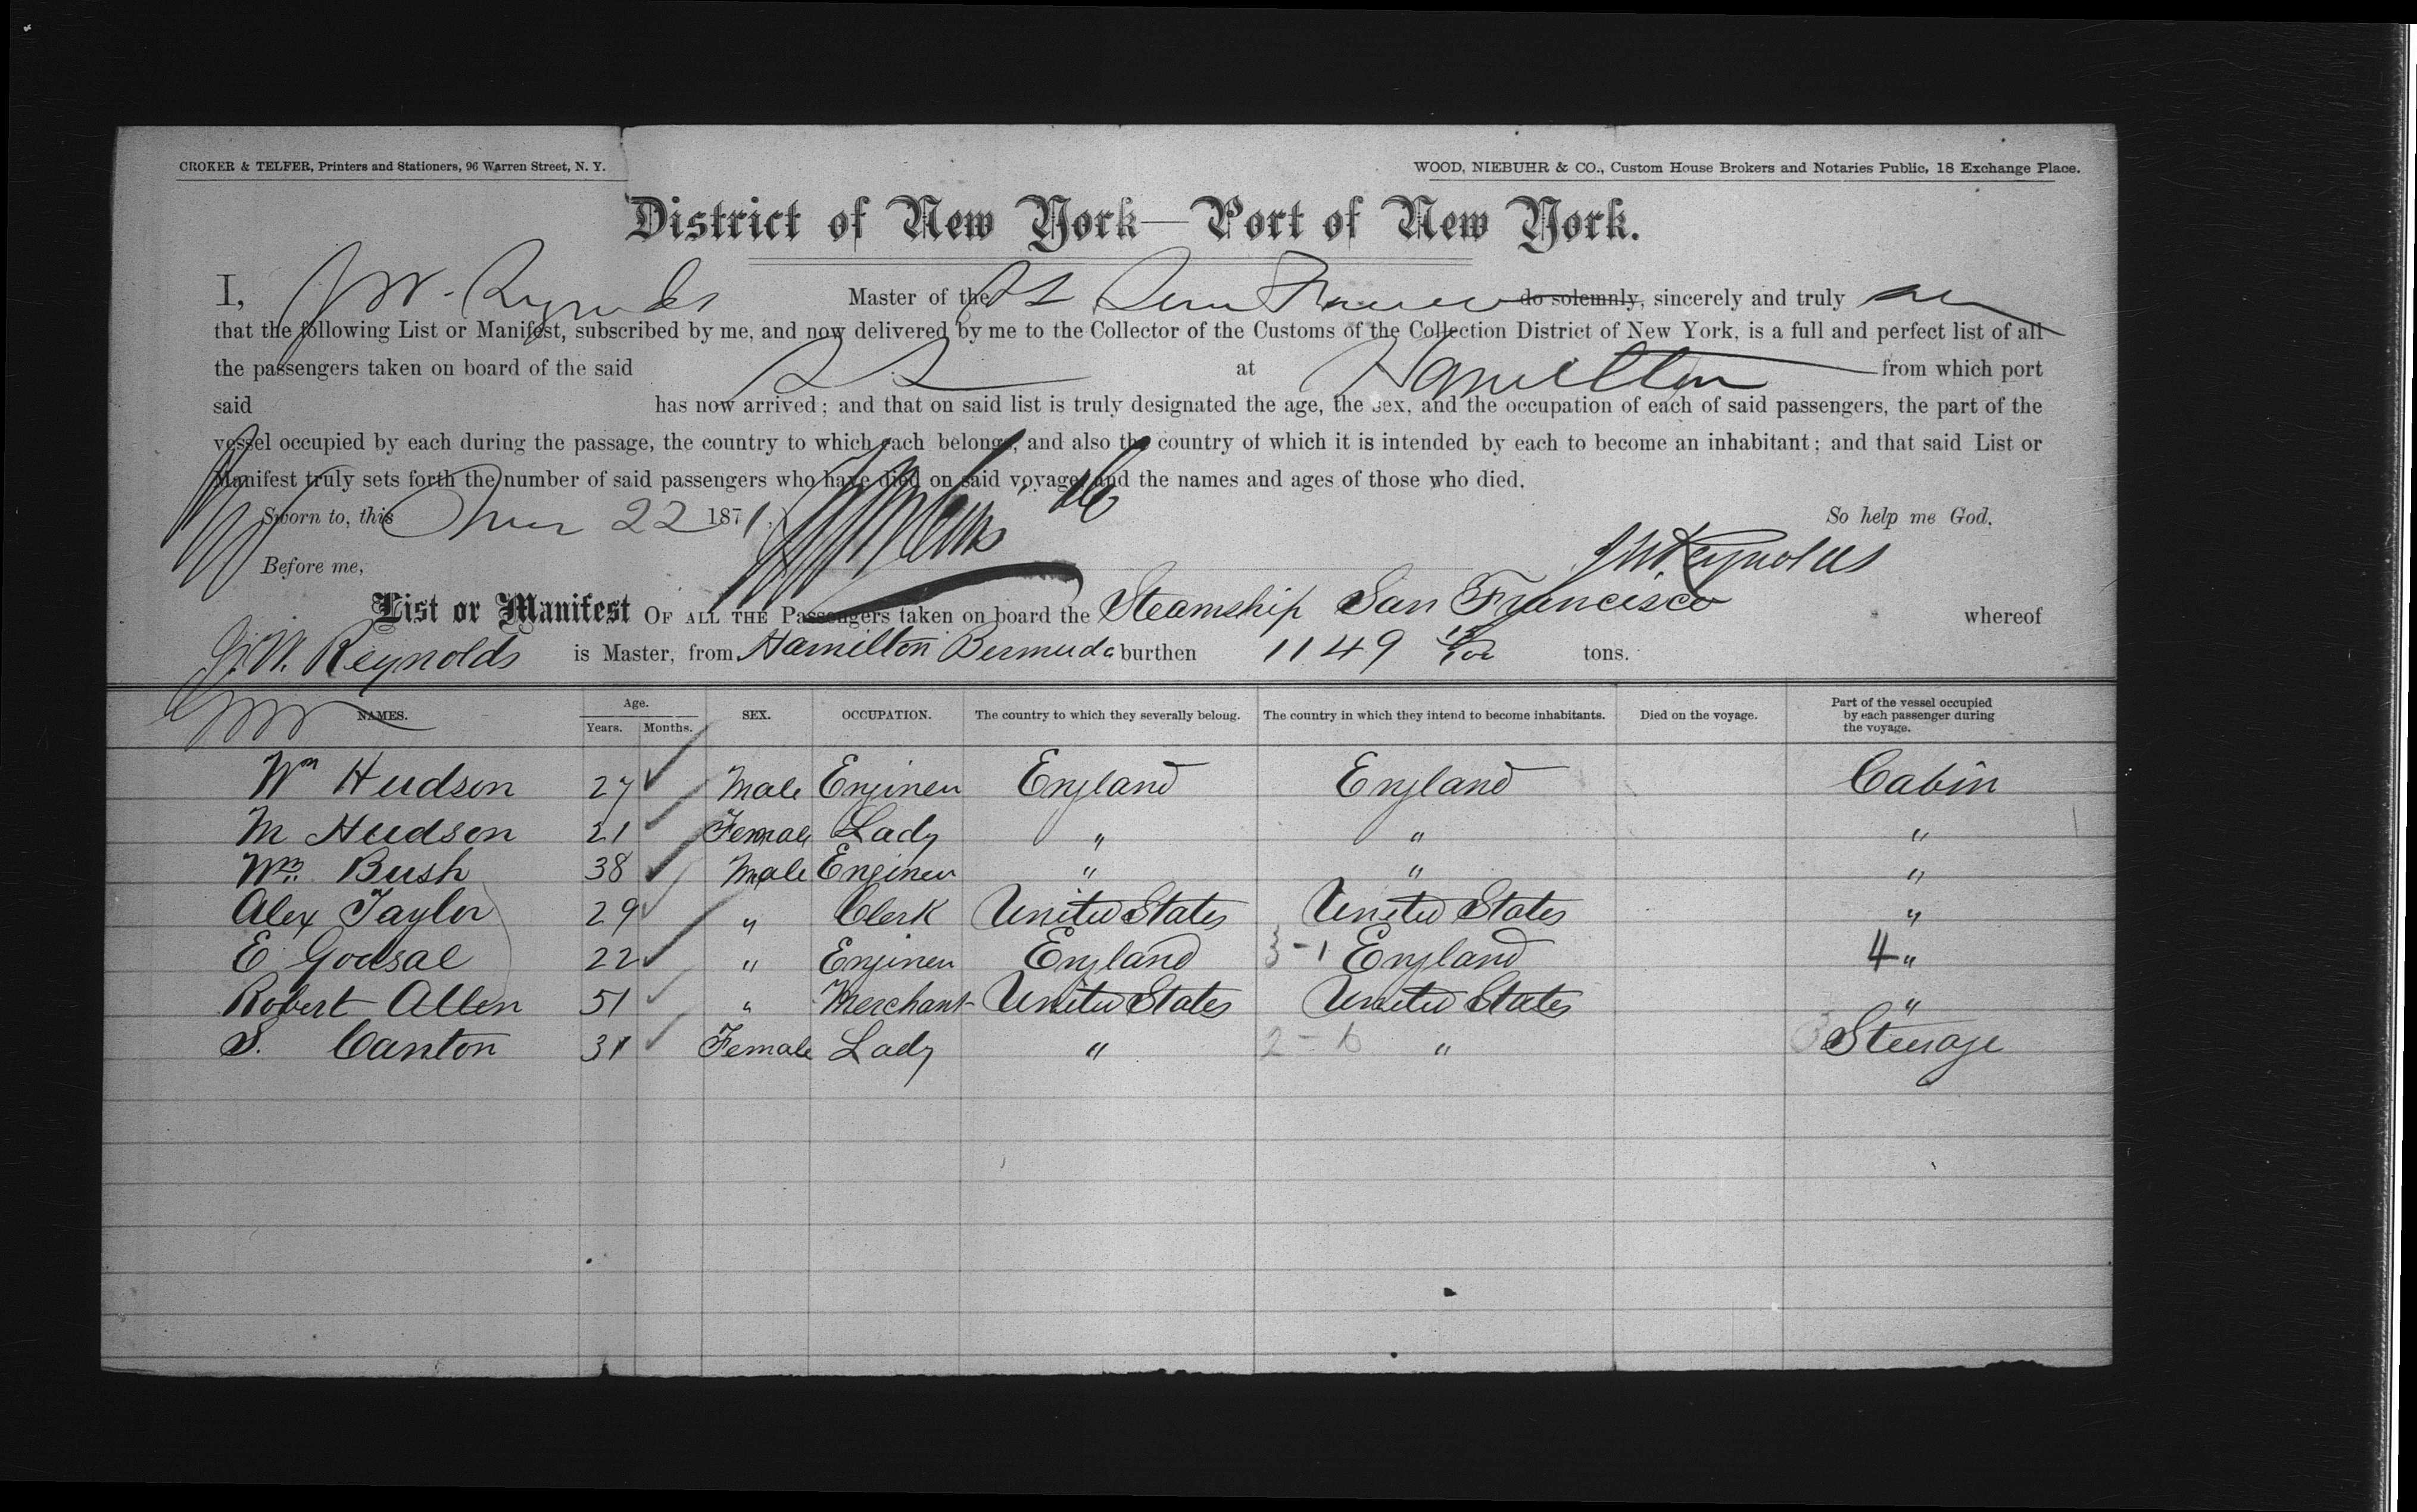 CROKER & TELFER, Printers and Stationers, 96 Warren Street, N. Y.
WOOD, NIEBUHR & CO., Custom House Brokers and Notaries Public, 18 Exchange Place.
District of New York—Port of New York.
I, J W. Reynolds Master of the SS San Francisco do solemnly, sincerely and truly
that the following List or Manifest, subscribed by me, and now delivered by me to the Collector of the Customs of the Collection District of New York, is a full and perfect list of all
the passengers taken on board of the said SS at Hamilton from which port
said has now arrived; and that on said list is truly designated the age, the sex, and the occupation of each of said passengers, the part of the
vessel occupied by each during the passage, the country to which each belongs, and also the country of which it is intended by each to become an inhabitant; and that said List or
Manifest truly sets forth the number of said passengers who have died on said voyage, and the names and ages of those who died.
Sworn to, this 22 1871. So help me God,
Before me, J W. Reynolds
List or Manifest OF ALL THE Passengers taken on board the Steamship San Francisco whereof
J. W. Reynolds is Master, from Hamilton Bermuda burthen 1149 tons.
NAMES. Age. Years. Months. SEX. OCCUPATION. The country to which they severally belong. The country in which they intend to become inhabitants. Died on the voyage. Part of the vessel occupied by each passenger during the voyage.
Wm Hudson 27 Male Engineer England England Cabin
M Hudson 21 Female Lady " " "
Wm. Bush 38 Male Engineer " " "
Alex Taylor 29 " Clerk United States United States "
E Godsal 22 " Engineer England 3-1 England 4 "
Robert Allen 51 " Merchant United States United States "
S. Canton 31 Female Lady " 2-6 " Steerage